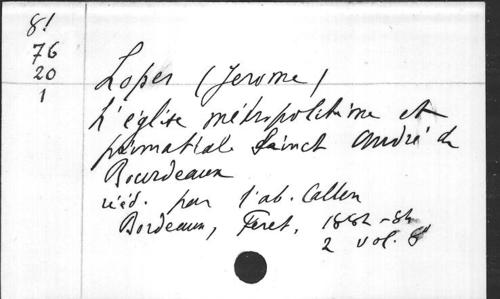 8!
76
20
1
Lopes (Jerome)
L'église métropolitaine et
primatiale Sainct André de
Bourdeaux
rééd. par l'ab. Callen
Bordeaux, Feret, 1882-84
2 vol. 8°